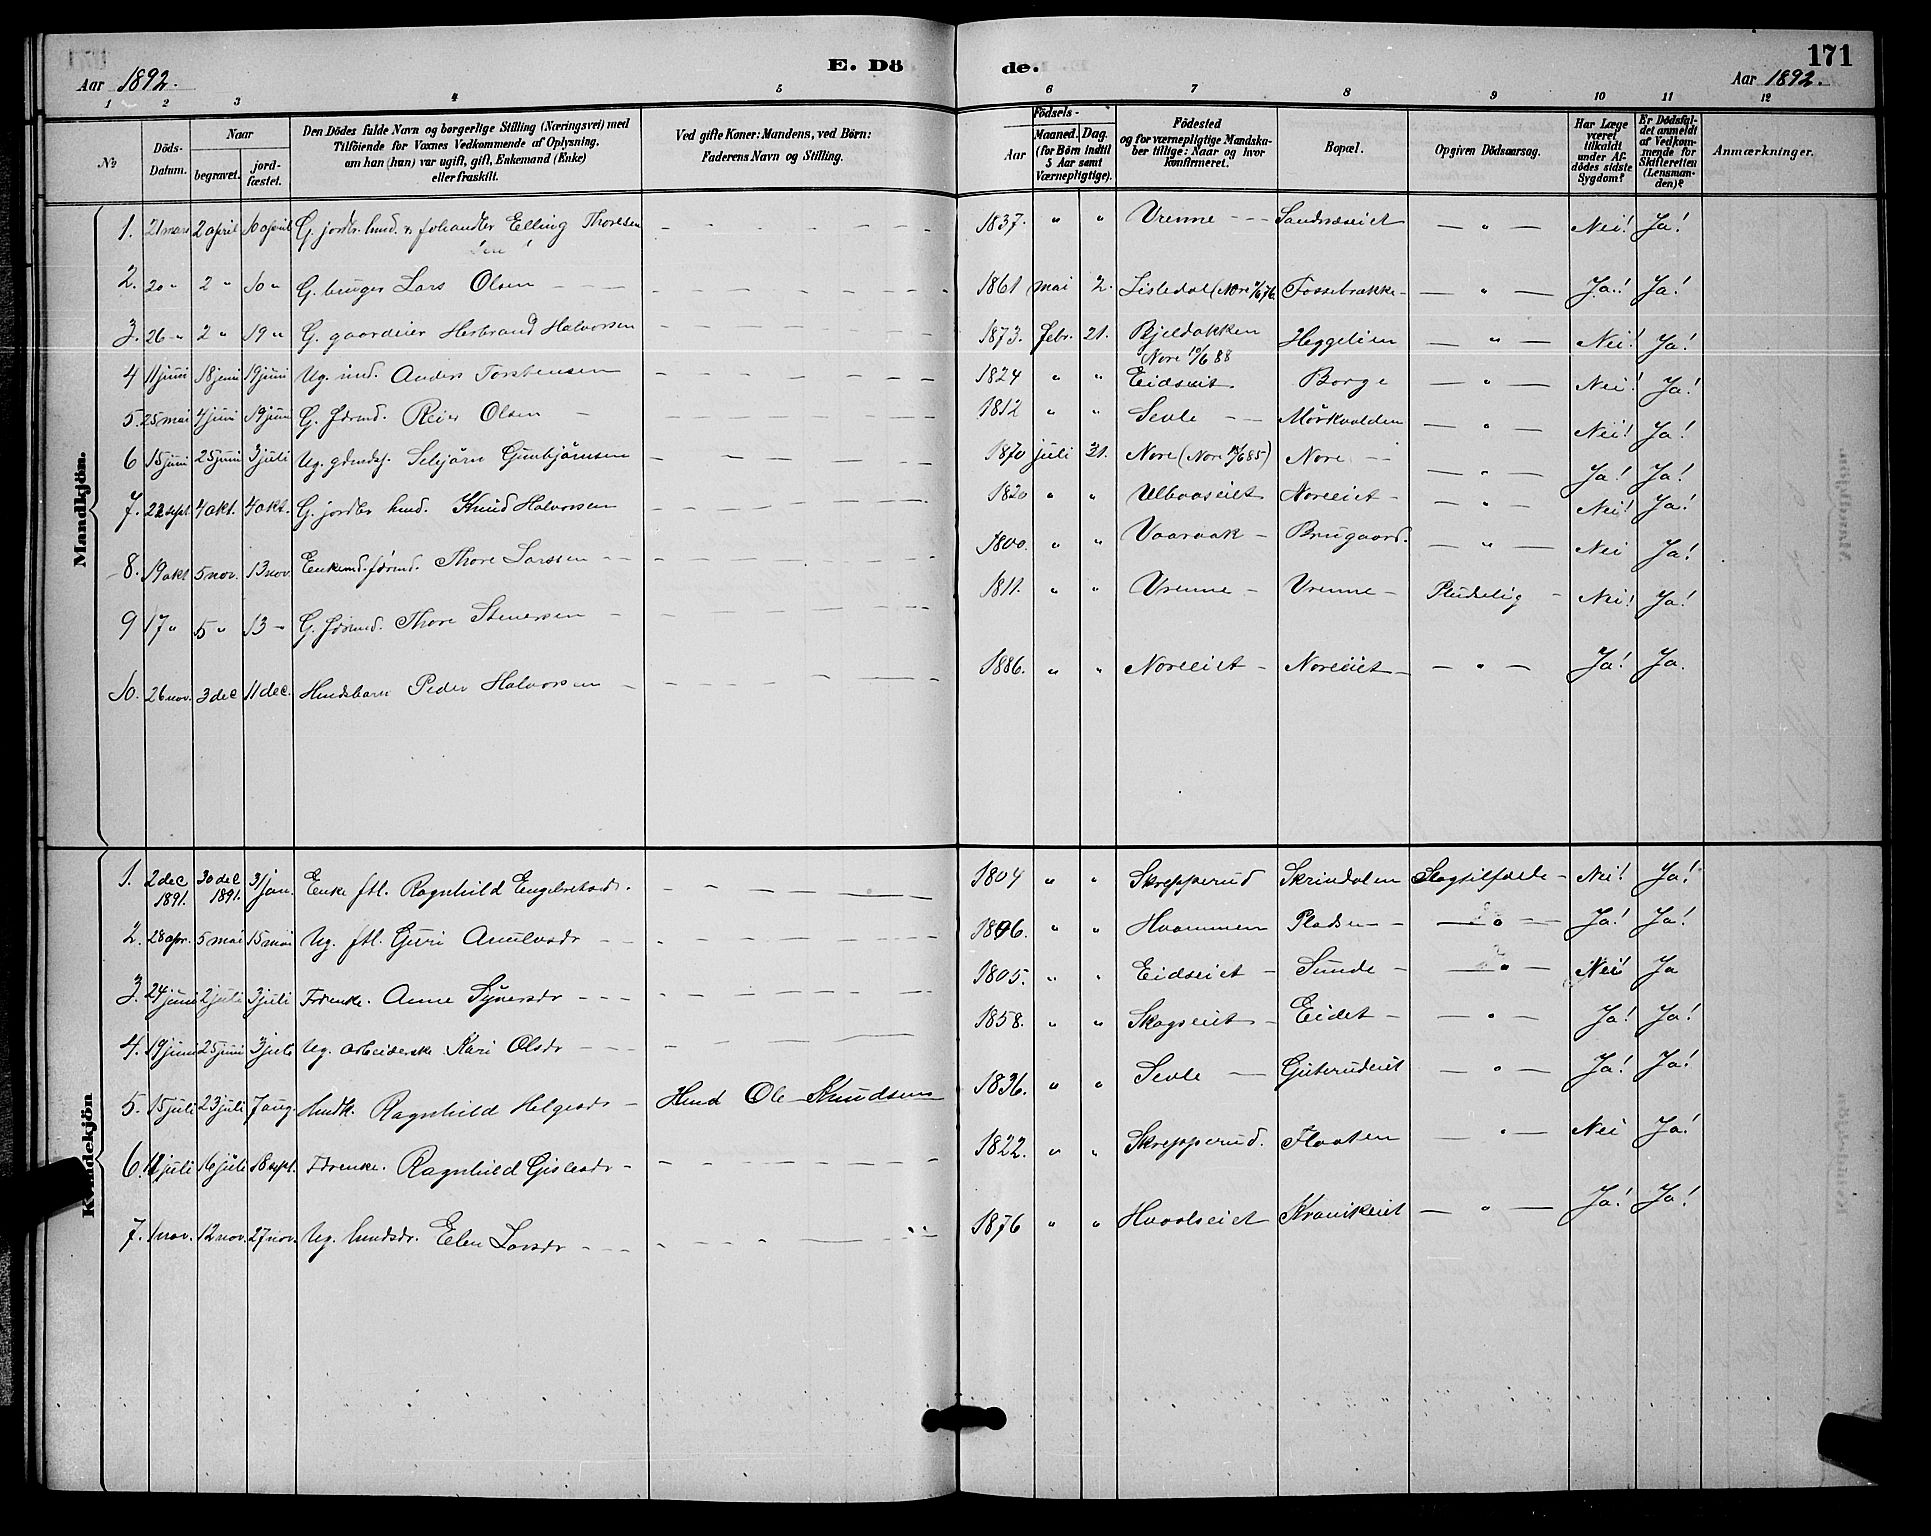 171
Aar 1892. E. Dö de. Aar 1892.
1 2 3 4 5 6 7 8 9 10 11 12
No
Döds-Datum.
Naar
begravet.
jord-fæstet.
Den Dödes fulde Navn og borgerlige Stilling (Næringsvei) med
Tilföiende for Voxnes Vedkommende af Oplysning,
om han (hun) var ugift, gift, Enkemand (Enke)
eller fraskilt.
Ved gifte Koner: Mandens, ved Börn:
Faderens Navn og Stilling.
Födsels-
Aar
Maaned. Dag.
(for Börn indtil
5 Aar samt
Værnepligtige).
Födested
og for værnepligtige Mandska-
ber tillige: Naar og hvor
konfirmeret.
Bopæl.
Opgiven Dödsaarsag.
Har Læge
været
tilkaldt
under Af-
dödes sidste
Sygdom?
Er Dödsfal-
det anmeldt
af Vedkom-
mende for
Skifteretten
(Lensman-
den)?
Anmærkninger.
Mandkjön.
1. 21 mars 2 april 10 april G. jordbr. husmd. & Elling Thoresen - - - 1837. " " Vrenne - - Sandnæseiet - " - Nei! Ja!
2. 20 " 2 " 10 " G. bruger Lars Olsen - - - 1861 mai 2. Lisledal (Nore 76. Fossebrække - " - Ja! Ja!
3. 26 " 2 " 19 " G. gaardeier Herbrand Halvorsen - - - 1873. febr. 21. Bjeldokken Nore 10/6 88 Heggelien - " - Nei! Ja!
4 11 juni 18 juni 19 juni Ug. ind. Anders Torstensen - - - 1824 " " Eidseiet. Borge - " - Nei! Ja!
5. 25 mai 4 juni 19 juni G. Førmd. Reier Olsen - 1812 " " Sevle - - Mörkvolden - " - Nei! Ja!
6 15 juni 25 juni 3 juli Ug. gdmdsj. Sebjörn Gunbjörnsen - - - 1870 juli 21. Nore (Nore 85) Nore - - - " - Ja! Ja!
7. 22 sept. 4 okt. 4 okt. G. jordbr husmd. Knud Halvorsen - - - 1820 " " Ulbaaseiet Noreeiet - - " - Nei! Ja!
8. 19 okt 5 nov. 13 nov. Enkemd. førmd. Thore Larssen - - - 1800. " " Vaaraak - Brugaard. - " - Nei Ja!
9 17 " 5 " 13 " G. førmd. Thore Stenersen - - - 1811. " " Vrenne - Vrenne - Pludselig - Nei! Ja!
10. 26 nov. 3 dec 11 dec. Husmdsbarn Peder Halvorsen - - - 1886. " " Noreeiet - Noreeiet - - " - Ja! Ja.
Kvindekjön
1. 2 dec 1891. 30 dec 1891. 31 jan. Enke ftl. Ragnhild Engebretsdr. - - - 1804 " " Skrepperud Skrindalen Slagtilfælde - Nei! Ja!
2. 28 apr. 5 mai 15 mai Ug. ftl. Guri - - - 18 6. " " Hvammen Pladsen - - " - Ja! Ja!
3. 24 juni 2 juli 3 juli Frenke. Anne Synersdr - - - 1805. " " Eidseiet - Sunde - - " - Nei! Ja
4. 19 juni 25 juni 3 juli Ug. arbeiderske Kari Olsdr - - - 1858. " " Skogseiet - Eidet - - " - Ja! Ja!
5. 15 juli 23 juli 7 aug. husmdk. Ragnhild Helgesdr - Husmd Ole Knudsens 1836. " " Sevle - Guterudeiet - " - Ja! Ja!
6. juli 16 juli 18 sept. Frenke. Ragnhild Gislesdr - - - 1822. " " Skrepperud. Flaaten - " - Nei Ja!
7. 1 nov. 12 nov. 27 nov. Ug. husmdsdr. Elen Larsdr - - - 1876 " " Hvaalseiet Kravikeiet - " - Ja! Ja!